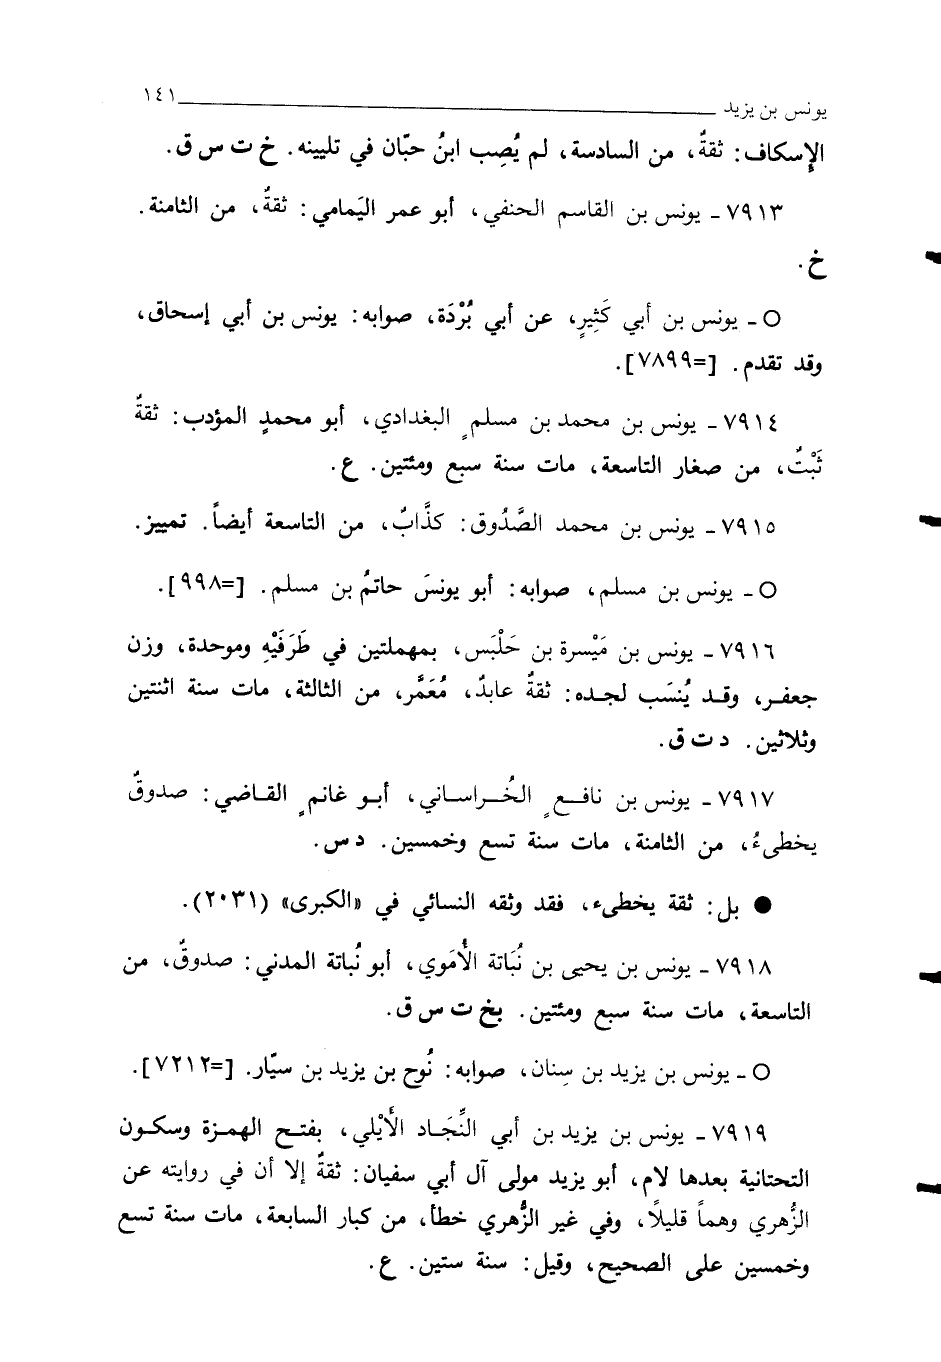 يونس بن يزيد ١٤١
الإسكاف: ثقةٌ، من السادسة، لم يُصِب ابنُ حبّان في تليينه. خ ت س ق.
٧٩١٣ - يونس بن القاسم الحنفي، أبو عمر اليَمامي: ثقةٌ، من الثامنة.
خ.
○ - يونس بن أبي كَثِيرٍ، عن أبي بُرْدَة، صوابه: يونس بن أبي إسحاق،
وقد تقدم. [=٧٨٩٩].
٧٩١٤ - يونس بن محمد بن مسلمٍ البغدادي، أبو محمدٍ المؤدب: ثقةٌ
ثَبْتٌ، من صغار التاسعة، مات سنة سبع ومئتين. ع.
٧٩١٥ - يونس بن محمد الصَّدُوق: كذَّابٌ، من التاسعة أيضاً. تمييز.
○ - يونس بن مسلم، صوابه: أبو يونسَ حاتمُ بن مسلم. [=٩٩٨].
٧٩١٦ - يونس بن مَيْسرة بن حَلْبَس، بمهملتين في طَرَفَيْهِ وموحدة، وزن
جعفر، وقد يُنسَب لجده: ثقةٌ عابدٌ، مُعَمَّر، من الثالثة، مات سنة اثنتين
وثلاثين. د ت ق.
٧٩١٧ - يونس بن نافعٍ الخُراساني، أبو غانمٍ القاضي: صدوقٌ
يخطىءُ، من الثامنة، مات سنة تسع وخمسين. د س.
● بل: ثقة يخطىء، فقد وثقه النسائي في «الكبرى» (٢٠٣١).
٧٩١٨ - يونس بن يحيى بن نُبَاتة الأُمَوي، أبو نُباتة المدني: صدوقٌ، من
التاسعة، مات سنة سبع ومئتين. بخ ت س ق.
○ - يونس بن يزيد بن سِنان، صوابه: نُوح بن يزيد بن سيّار. [=٧٢١٢].
٧٩١٩ - يونس بن يزيد بن أبي النِّجَاد الأَيْلي، بفتح الهمزة وسكون
التحتانية بعدها لام، أبو يزيد مولى آل أبي سفيان: ثقةٌ إلا أن في روايته عن
الزُّهري وهماً قليلًا، وفي غير الزُّهري خطأ، من كبار السابعة، مات سنة تسع
وخمسين على الصحيح، وقيل: سنة ستين. ع.